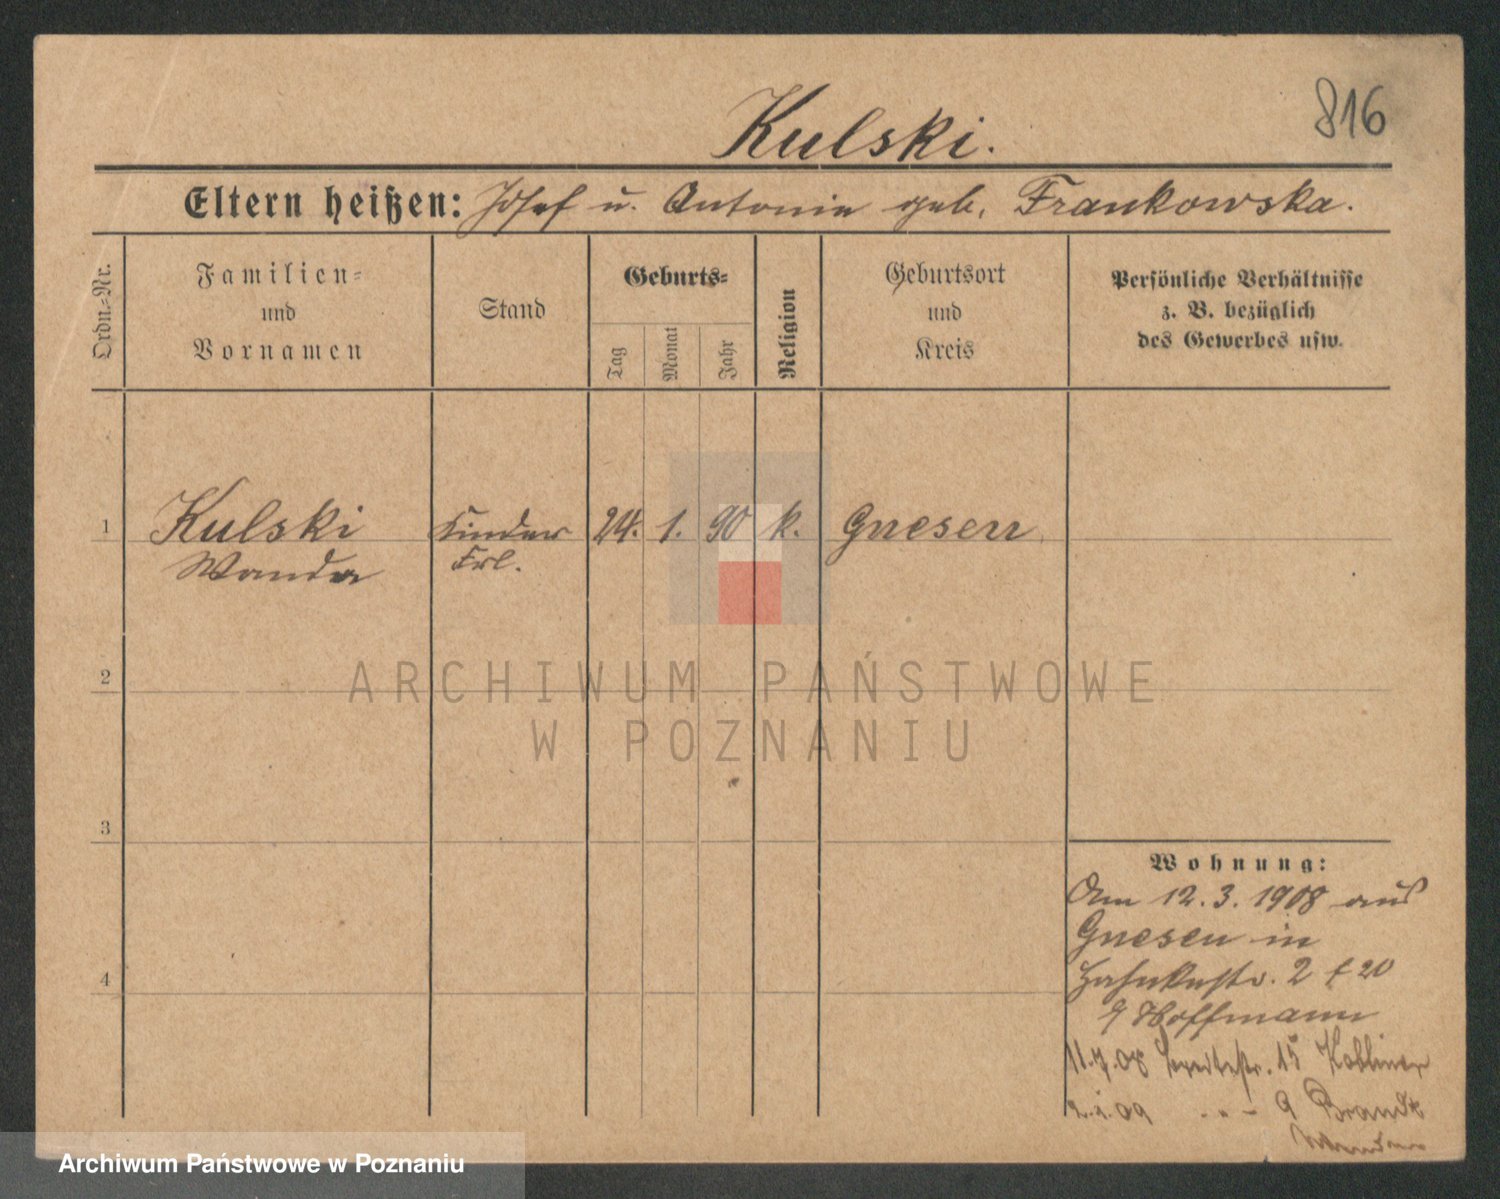 816
Kulski.
Eltern heißen: Josef u. Antonie geb. Frankowska.
Ordn.-Nr.
Familien-
und
Vornamen
Stand
Geburts-
Tag
Monat
Jahr
Religion
Geburtsort
und
Kreis
Persönliche Verhältnisse
z. B. bezüglich
des Gewerbes usw.
1 Kulski Kinder 24. 1. 90 k. Gnesen
Wanda Frl.
2
3
4
Wohnung:
Am 12.3.1908 aus
Gnesen in
2
Hoffmann
11.7.08 15
2.1.09 " - 9 Brandt
ARCHIWUM PAŃSTWOWE
W POZNANIU
Archiwum Państwowe w Poznaniu